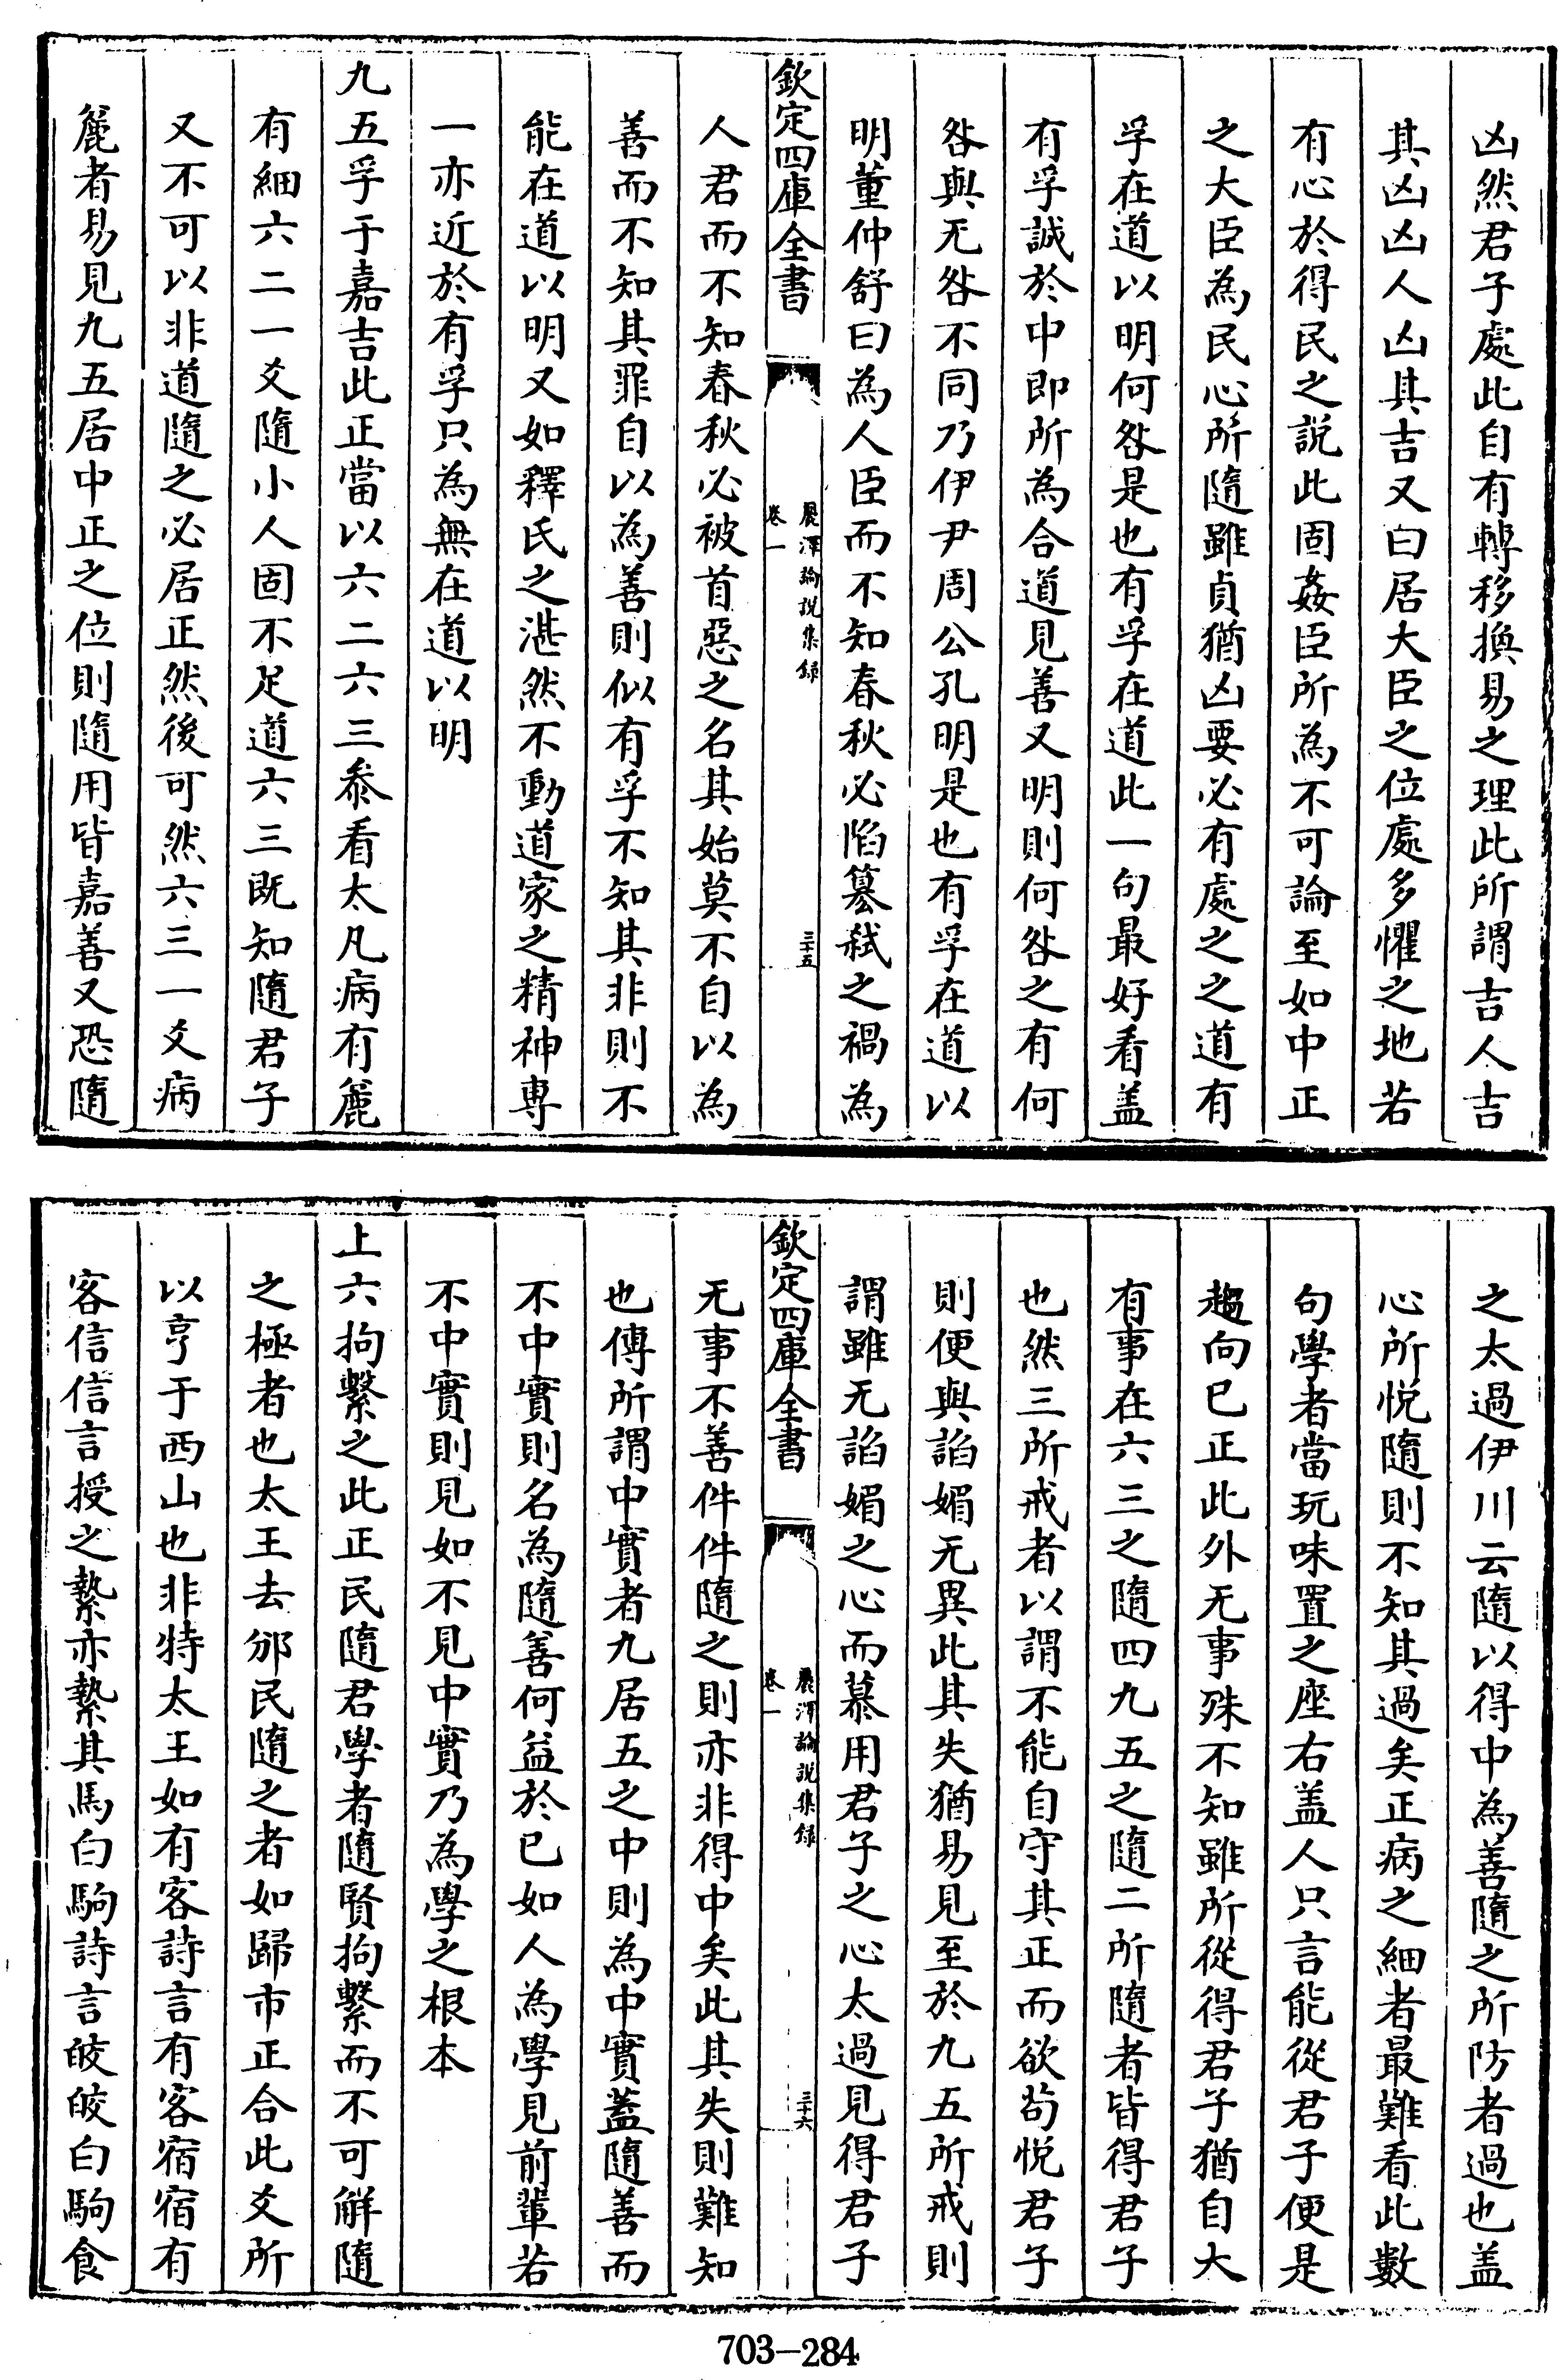 凶然君子處此自有轉移換易之理此所謂吉人吉
其凶凶人凶其吉又曰居大臣之位處多懼之地若
有心於得民之說此固姦臣所為不可論至如中正
之大臣為民心所隨雖貞猶凶要必有處之之道有
孚在道以明何咎是也有孚在道此一句最好看盖
有孚誠於中即所為合道見善又明則何咎之有何
咎與无咎不同乃伊尹周公孔明是也有孚在道以
明董仲舒曰為人臣而不知春秋必陷簒弑之禍為
欽定四庫全書
麗澤論說集錄
卷一
三十五
人君而不知春秋必被首惡之名其始莫不自以為
善而不知其罪自以為善則似有孚不知其非則不
能在道以明又如釋氏之湛然不動道家之精神専
一亦近於有孚只為無在道以明
九五孚于嘉吉此正當以六二六三叅看太凡病有麄
有細六二一爻隨小人固不足道六三既知隨君子
又不可以非道隨之必居正然後可然六三一爻病
麄者易見九五居中正之位則隨用皆嘉善又恐隨
之太過伊川云隨以得中為善隨之所防者過也盖
心所悅隨則不知其過矣正病之細者最難看此數
句學者當玩味置之座右盖人只言能從君子便是
趨向已正此外无事殊不知雖所從得君子猶自大
有事在六三之隨四九五之隨二所隨者皆得君子
也然三所戒者以謂不能自守其正而欲茍悅君子
則便與諂媚无異此其失猶易見至於九五所戒則
謂雖无諂媚之心而慕用君子之心太過見得君子
欽定四庫全書
麗澤論說集錄
卷一
三十六
无事不善件件隨之則亦非得中矣此其失則難知
也傳所謂中實者九居五之中則為中實蓋隨善而
不中實則名為隨善何益於已如人為學見前輩若
不中實則見如不見中實乃為學之根本
上六拘繫之此正民隨君學者隨賢拘繫而不可解隨
之極者也太王去邠民隨之者如歸市正合此爻所
以亨于西山也非特太王如有客詩言有客宿宿有
客信信言授之縶亦縶其馬白駒詩言皎皎白駒食
703-284